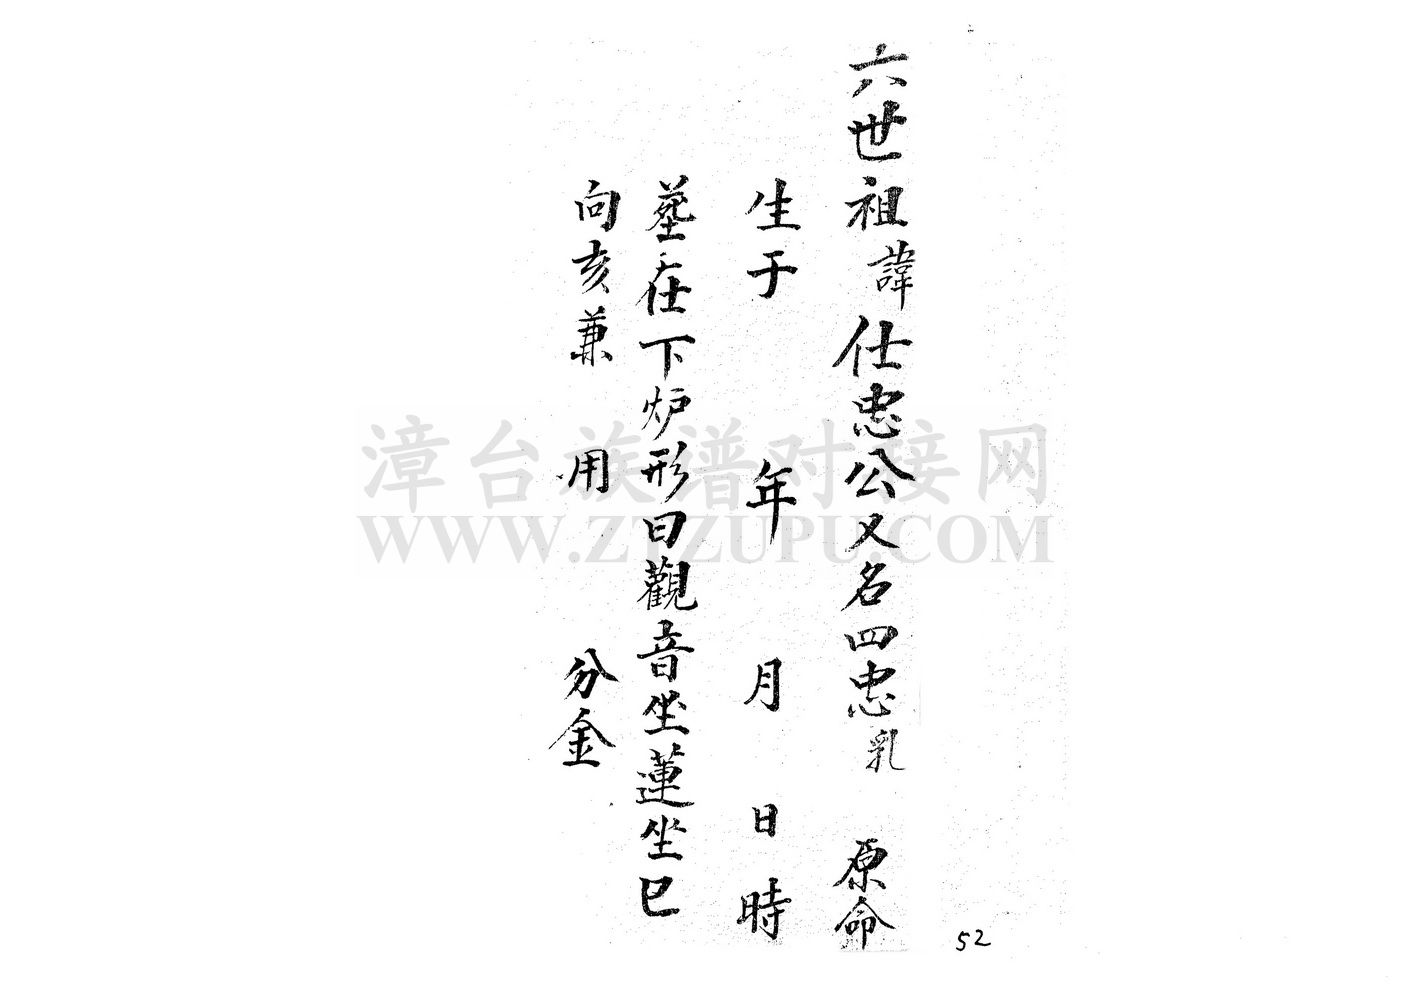 六世祖諱仕忠公又名四忠乳 原命
生于 年 月 日時
塟在下炉形曰觀音坐蓮坐巳
向亥兼 用 分金
52
漳台族谱对接网
WWW.ZTZUPU.COM